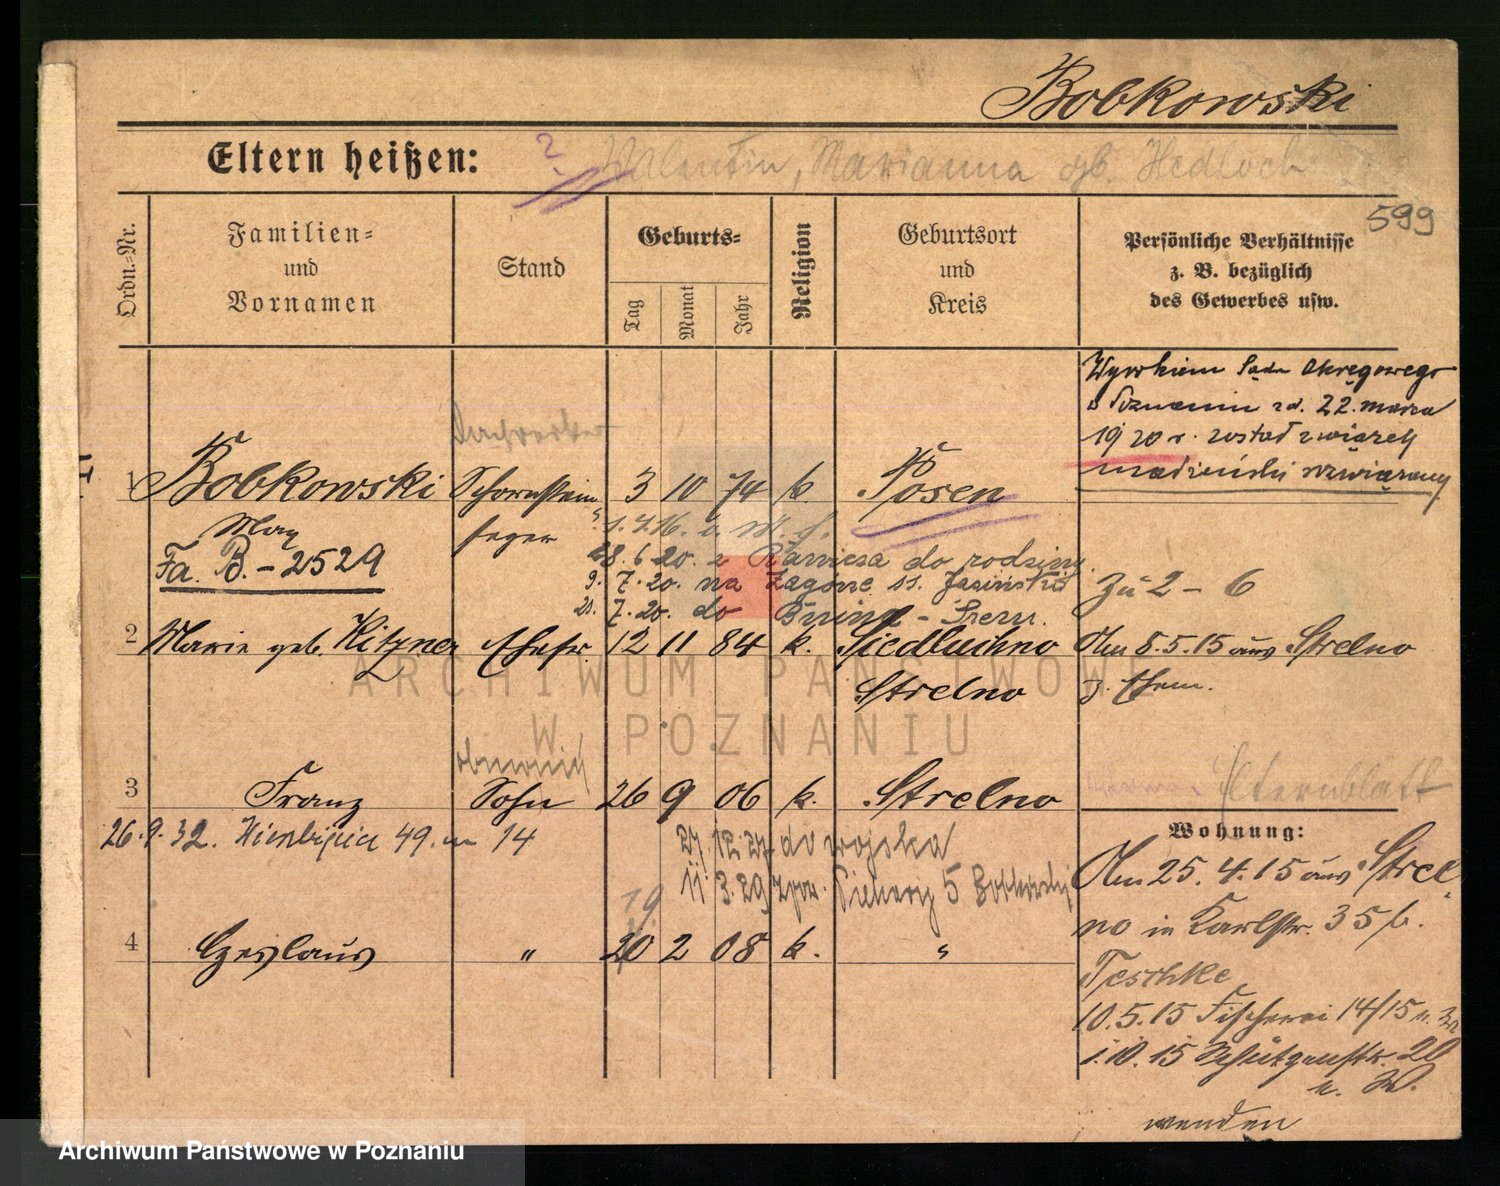 Bobkowski
Eltern heißen: 2. Valentin, Marianna gb. Hedloch
599
Ordn.-Nr.
Familien-
und
Vornamen
Stand
Geburts-
Tag
Monat
Jahr
Religion
Geburtsort
und
Kreis
Persönliche Verhältnisse
z. B. bezüglich
des Gewerbes usw.
Wyrokiem Sądu Okręgowego
w Poznaniu zd. 22. marca
1920 r. został związek
małżeński rozwiązany
1 Bobkowski Schornstein 3 10 74 k. Posen
Max feger 1.4.16.
Fa. B. - 2529
28.6.20. z Rawicza do rodziny
9.7.20. na Zagórze 11. Jasiński
21.7.20. do Bnina - Śrem.
Zu 2 - 6
2 Marie geb. Kitzner Ehefr. 12 11 84 k. Siedluchno Am 8.5.15 aus Strelno
Strelno z. Ehem.
3 Franz Sohn 26 9 06 k. Strelno
Elternblatt
26.9.32. 49. m 14
27.12.27 do wojska
11.3.29 5 Bobkowski
19.
4 Czeslaus " 20 2 08 k. "
Wohnung:
Am 25.4.15 aus Strel-
no in Karlstr. 35 b.
Teschke
10.5.15 Fischerei 14/15
1.10.15 Schützenstr. 20
u. W.
wenden
ARCHIWUM PAŃSTWOWE
W POZNANIU
Archiwum Państwowe w Poznaniu